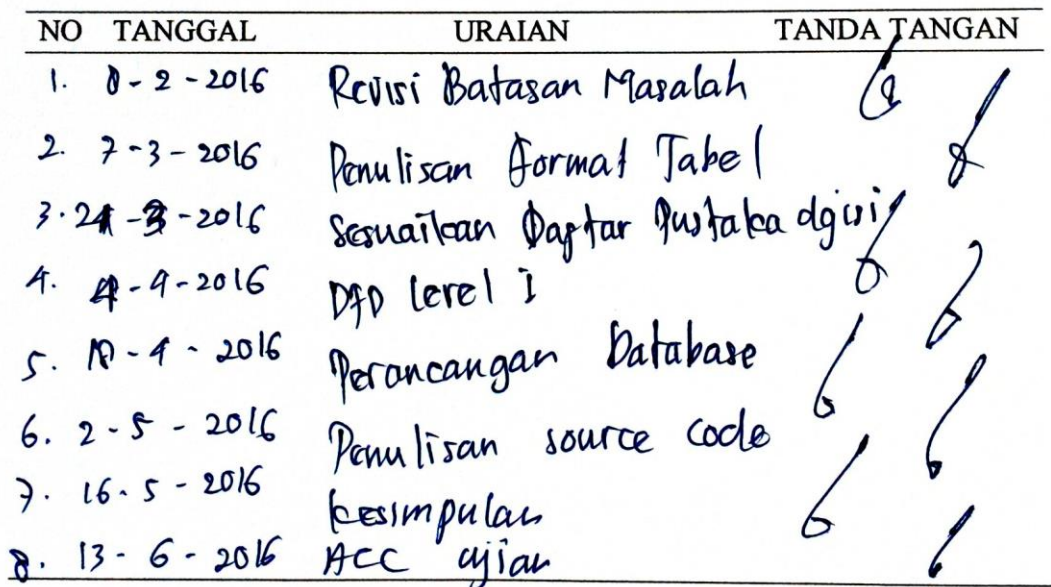 NO TANGGAL URAIAN TANDA TANGAN
1. 8-2-2016 Revisi Batasan Masalah
2. 7-3-2016 Penulisan Format Tabel
3. 21-3-2016 Sesuaikan Daftar Pustaka dg isi
4. 4-4-2016 DFD level I
5. 18-4-2016 Perancangan Database
6. 2-5-2016 Penulisan source code
7. 16-5-2016 Kesimpulan
8. 13-6-2016 ACC ujian